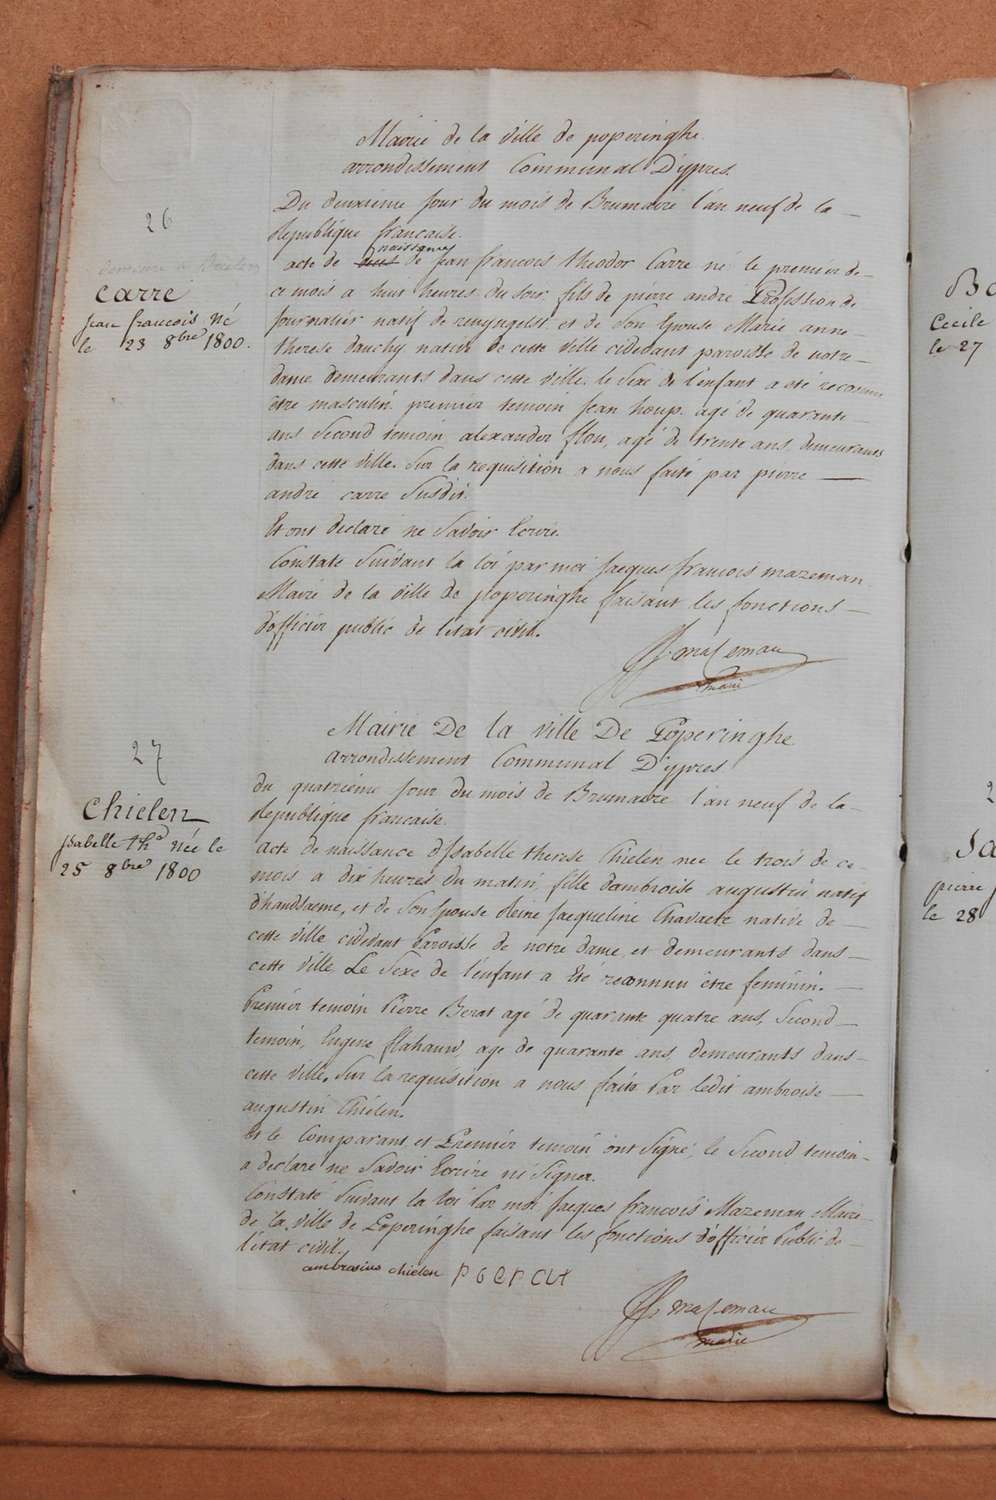 Mairie de la ville de poperinghe
arrondissement Communal D'ypres
Du deuxieme jour du mois de Brumaire l'an neuf de la
Republique francaise.
acte de naissance de jean francois theodor Carre né le premier de
ce mois a huit heures du soir, fils de pierre andré Profession de
journalier natif de renyngelst et de son Epouse Marie anne
therese dauchy native de cette ville cidevant paroisse de notre
dame demeurants dans cette ville. le sexe de l'enfant a eté reconnu
être masculin premier temoin jean houp. agé de quarante
ans second temoin alexander flou, agé de trente ans, demeurants
dans cette ville. Sur la requisition a nous faite par pierre
andre carre susdit.
Et ont declaré ne savoir Ecrire.
Constaté suivant la loi par moi jacques francois mazeman
Maire de la ville de poperinghe faisant les fonctions
d'officier public de l'etat civil.
mazeman
maire
26
demeure a
Carre
jean francois né
le 23 8bre 1800.
Mairie De la ville De Poperinghe
arrondissement Communal D'ypres
du quatrième jour du mois de Brumaire l'an neuf de la
Republique francaise.
27
Chielen
isabelle thé née le
25 8bre 1800
acte de naissance d'Isabelle therese Chielen née le trois de ce
mois a dix heures du matin, fille d'ambroise augustin natif
d'handsaeme, et de son Epouse Reine jacqueline Chavaete native de
cette ville cidevant Paroisse de notre dame, et demeurants dans
cette ville. Le Sexe de l'enfant a Eté reconnu être feminin.
Premier temoin Pierre Berat agé de quarante quatre ans, Second
temoin, Eugene flahauw, age de quarante ans, demeurants dans
cette ville, sur la requisition a nous faite Par ledit ambroise
augustin Chielen.
Et le Comparant et Premier temoin ont signé, le Second temoin
a declaré ne savoir Ecrire ni signer.
Constaté suivant la loi Par moi jacques francois Mazeman Maire
de la ville de Poperinghe faisant les fonctions d'officier Public de
l'état civil.
ambrosius chielen
mazeman
maire
Cecile
le 27
pierre
le 28